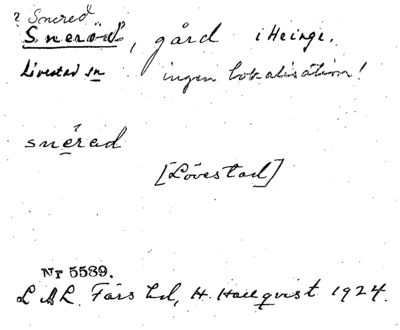 ? Snered
Sneröd, gård i Heinge.
Livestad sn ingen lokalisation!
snered
[Lövestad]
Nr 5589.
LAL. Färs hd, H. Hallqvist 1924.